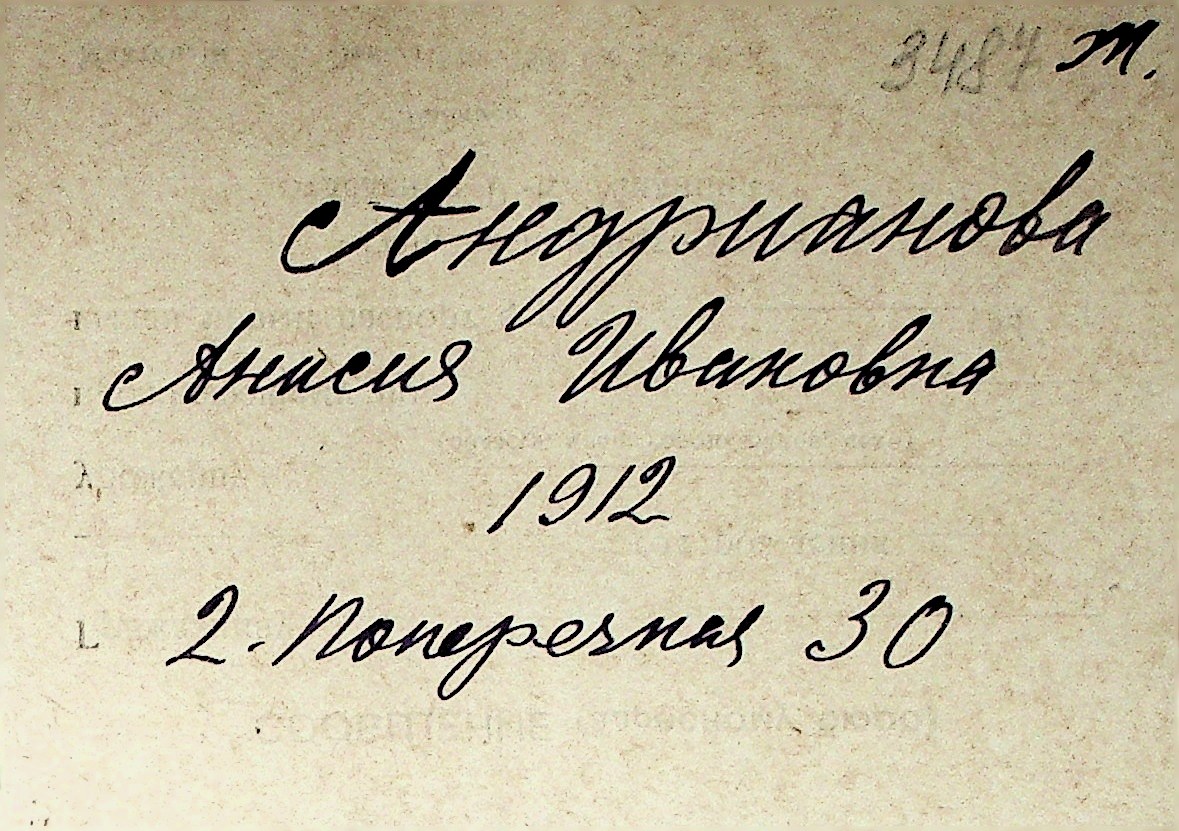 3484 т.
Андрианова
Анисия Ивановна
1912
2. Поперечная 30